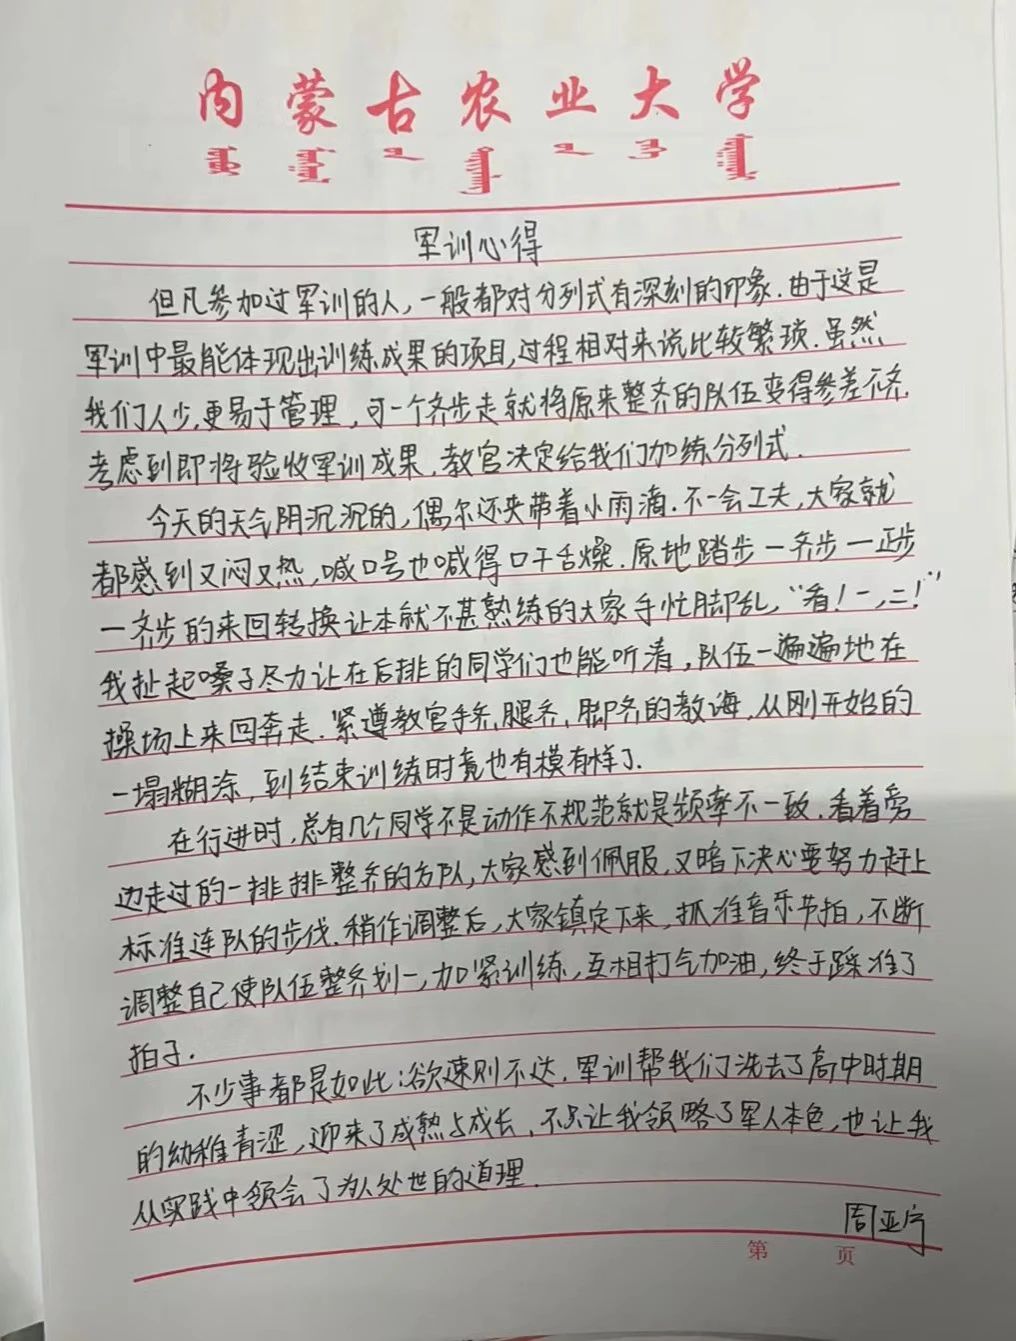 内蒙古农业大学
军训心得
但凡参加过军训的人,一般都对分列式有深刻的印象.由于这是
军训中最能体现出训练成果的项目,过程相对来说比较繁琐.虽然
我们人少,更易于管理,可一个齐步走就将原来整齐的队伍变得参差不齐.
考虑到即将验收军训成果,教官决定给我们加练分列式.
今天的天气阴沉沉的,偶尔还夹带着小雨滴.不一会工夫,大家就
都感到又闷又热,喊口号也喊得口干舌燥.原地踏步一齐步一正步
一齐步的来回转换让本就不甚熟练的大家手忙脚乱,“看!一,二!”
我扯起嗓子尽力让在后排的同学们也能听清,队伍一遍遍地在
操场上来回奔走.紧遵教官手齐,腿齐,脚齐的教诲,从刚开始的
一塌糊涂,到结束训练时竟也有模有样了.
在行进时,总有几个同学不是动作不规范就是频率不一致.看着旁
边走过的一排排整齐的方队,大家感到佩服,又暗下决心要努力赶上
标准连队的步伐.稍作调整后,大家镇定下来,抓准音乐节拍,不断
调整自己使队伍整齐划一,加紧训练,互相打气加油,终于踩准了
拍子.
不少事都是如此:欲速则不达.军训帮我们洗去了高中时期
的幼稚青涩,迎来了成熟与成长.不只让我领略了军人本色,也让我
从实践中领会了为人处世的道理.
周亚宁
第 页